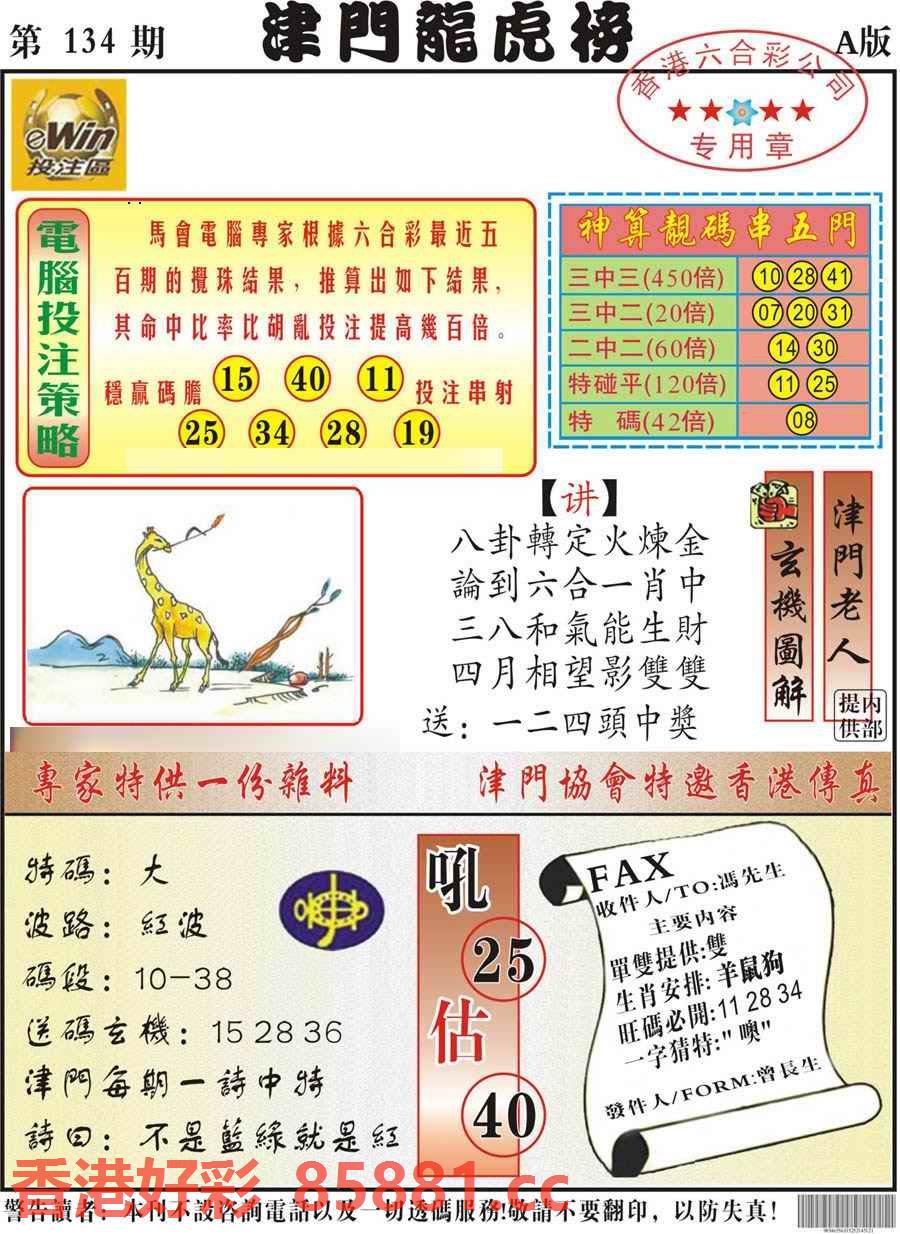 第 134 期
津門龍虎榜
A版
香港六合彩公司
专用章
eWin
投注區
電腦投注策略
馬會電腦專家根據六合彩最近五
百期的攪珠結果，推算出如下結果，
其命中比率比胡亂投注提高幾百倍。
穩贏碼膽 15 40 11 投注串射
25 34 28 19
神算靚碼串五門
三中三(450倍) 10 28 41
三中二(20倍) 07 20 31
二中二(60倍) 14 30
特碰平(120倍) 11 25
特 碼(42倍) 08
【讲】
八卦轉定火煉金
論到六合一肖中
三八和氣能生財
四月相望影雙雙
送：一二四頭中獎
玄機圖解
津門老人
提供
内部
專家特供一份雜料
津門協會特邀香港傳真
特碼：大
波路：紅波
碼段：10-38
送碼玄機：15 28 36
津門每期一詩中特
詩曰：不是藍綠就是紅
吼
25
估
40
FAX
收件人/TO:馮先生
主要内容
單雙提供:雙
生肖安排:羊鼠狗
旺碼必開:11 28 34
一字猜特:"噢"
發件人/FORM:曾長生
香港好彩 85881.cc
警告讀者：本刊不設咨詢電話以及一切透碼服務!敬請不要翻印，以防失真!